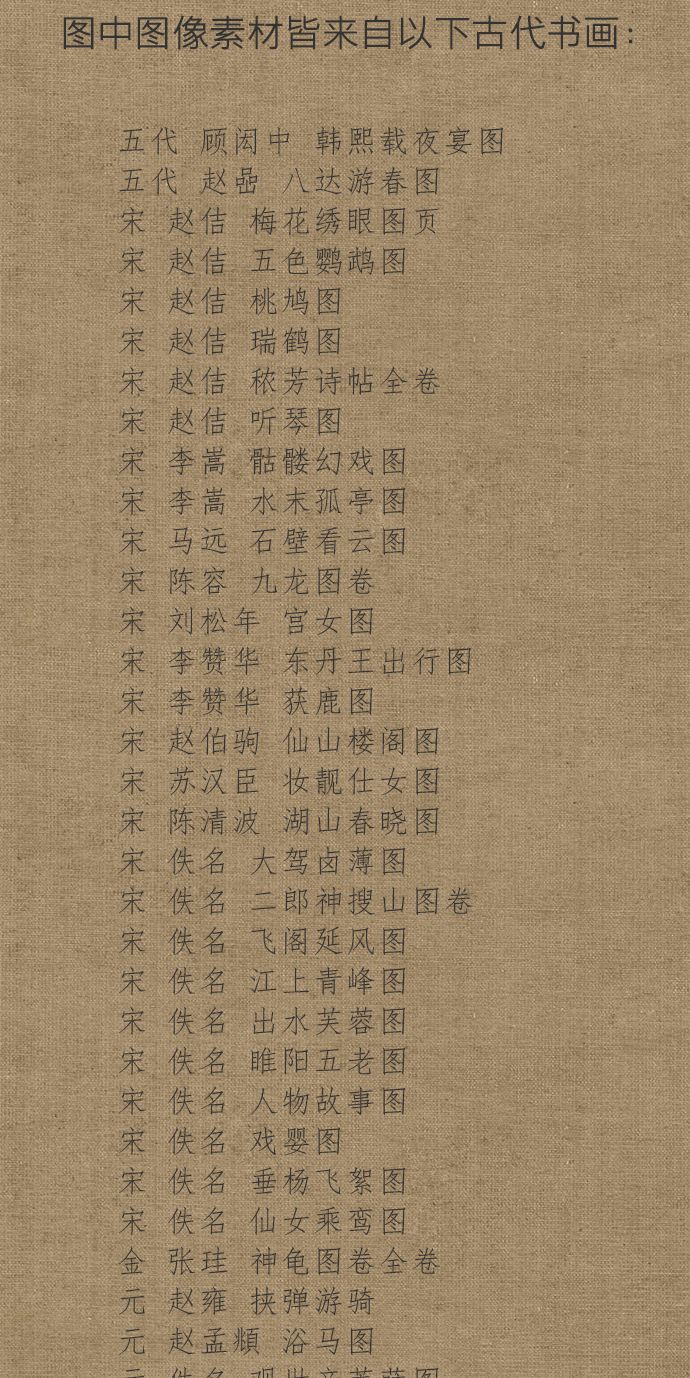 图中图像素材皆来自以下古代书画：
五代 顾闳中 韩熙载夜宴图
五代 赵喦 八达游春图
宋 赵佶 梅花绣眼图页
宋 赵佶 五色鹦鹉图
宋 赵佶 桃鸠图
宋 赵佶 瑞鹤图
宋 赵佶 秾芳诗帖全卷
宋 赵佶 听琴图
宋 李嵩 骷髅幻戏图
宋 李嵩 水末孤亭图
宋 马远 石壁看云图
宋 陈容 九龙图卷
宋 刘松年 宫女图
宋 李赞华 东丹王出行图
宋 李赞华 获鹿图
宋 赵伯驹 仙山楼阁图
宋 苏汉臣 妆靓仕女图
宋 陈清波 湖山春晓图
宋 佚名 大驾卤薄图
宋 佚名 二郎神搜山图卷
宋 佚名 飞阁延风图
宋 佚名 江上青峰图
宋 佚名 出水芙蓉图
宋 佚名 睢阳五老图
宋 佚名 人物故事图
宋 佚名 戏婴图
宋 佚名 垂杨飞絮图
宋 佚名 仙女乘鸾图
金 张珪 神龟图卷全卷
元 赵雍 挟弹游骑
元 赵孟頫 浴马图